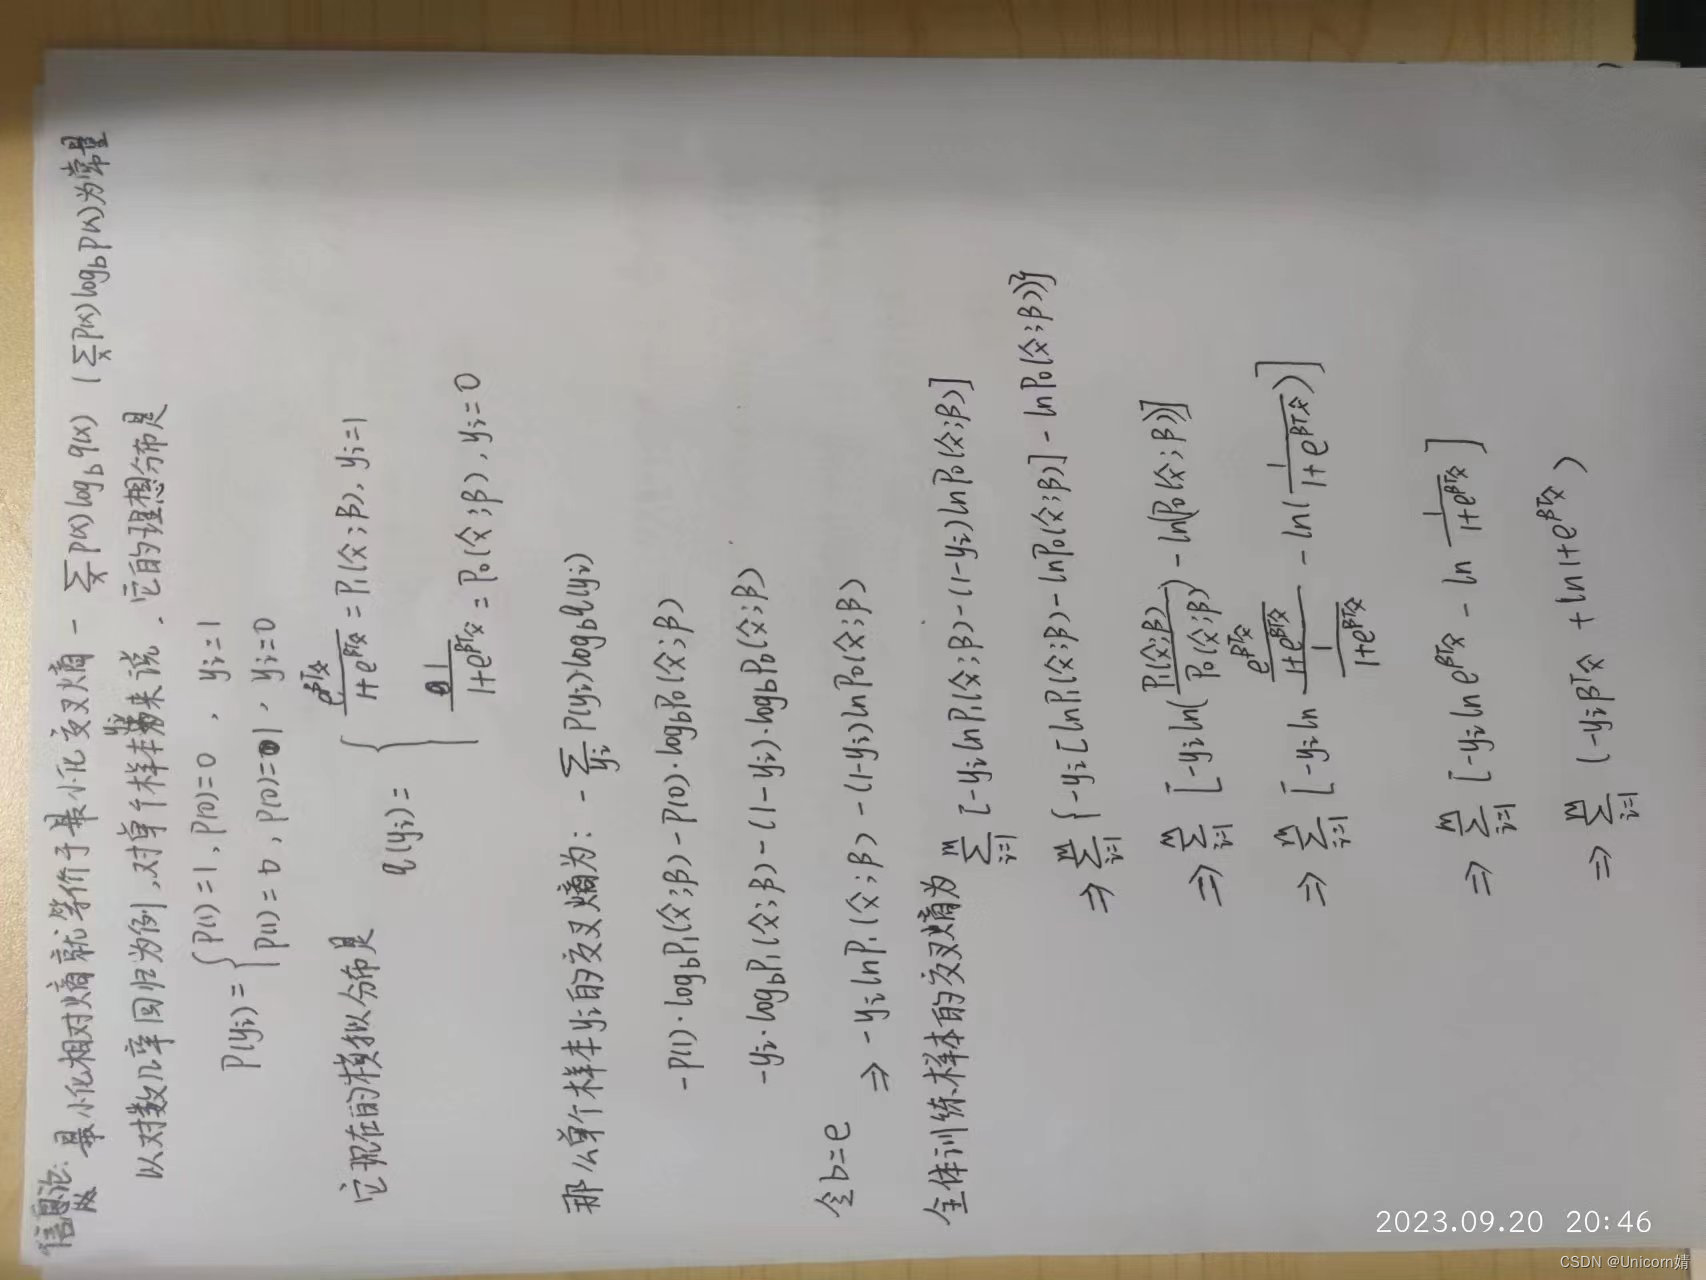 信息论版: 最小化相对熵就等价于最小化交叉熵 - ∑ₓ P(x) log_b q(x) ( ∑ₓ P(x) log_b P(x) 为常量
以对数几率回归为例,对单个样本yᵢ来说,它的理想分布是
P(yᵢ) = { P(1)=1, P(0)=0 , yᵢ=1
P(1)=0, P(0)=1 , yᵢ=0
它现在的模拟分布是
q(yᵢ) = { e^{βᵀx̂} / (1+e^{βᵀx̂}) = P₁(x̂;β), yᵢ=1
1 / (1+e^{βᵀx̂}) = P₀(x̂;β), yᵢ=0
那么单个样本yᵢ的交叉熵为: - ∑_{yᵢ} P(yᵢ) log_b q(yᵢ)
-P(1)·log_b P₁(x̂;β) - P(0)·log_b P₀(x̂;β)
-yᵢ·log_b P₁(x̂;β) - (1-yᵢ)·log_b P₀(x̂;β)
令b=e
⇒ -yᵢ ln P₁(x̂;β) - (1-yᵢ) ln P₀(x̂;β)
全体训练样本的交叉熵为
∑_{i=1}^{m} [-yᵢ ln P₁(x̂;β) - (1-yᵢ) ln P₀(x̂;β)]
⇒ ∑_{i=1}^{m} {-yᵢ [ln P₁(x̂;β) - ln P₀(x̂;β)] - ln P₀(x̂;β)}
⇒ ∑_{i=1}^{m} [-yᵢ ln( P₁(x̂;β) / P₀(x̂;β) ) - ln(P₀(x̂;β))]
⇒ ∑_{i=1}^{m} [-yᵢ ln (e^{βᵀx̂} / (1+e^{βᵀx̂})) / (1 / (1+e^{βᵀx̂})) - ln( 1 / (1+e^{βᵀx̂}) )]
⇒ ∑_{i=1}^{m} [-yᵢ ln e^{βᵀx̂} - ln 1 / (1+e^{βᵀx̂}) ]
⇒ ∑_{i=1}^{m} (-yᵢ βᵀx̂ + ln 1+e^{βᵀx̂} )
2023.09.20 20:46
CSDN @Unicorn婧